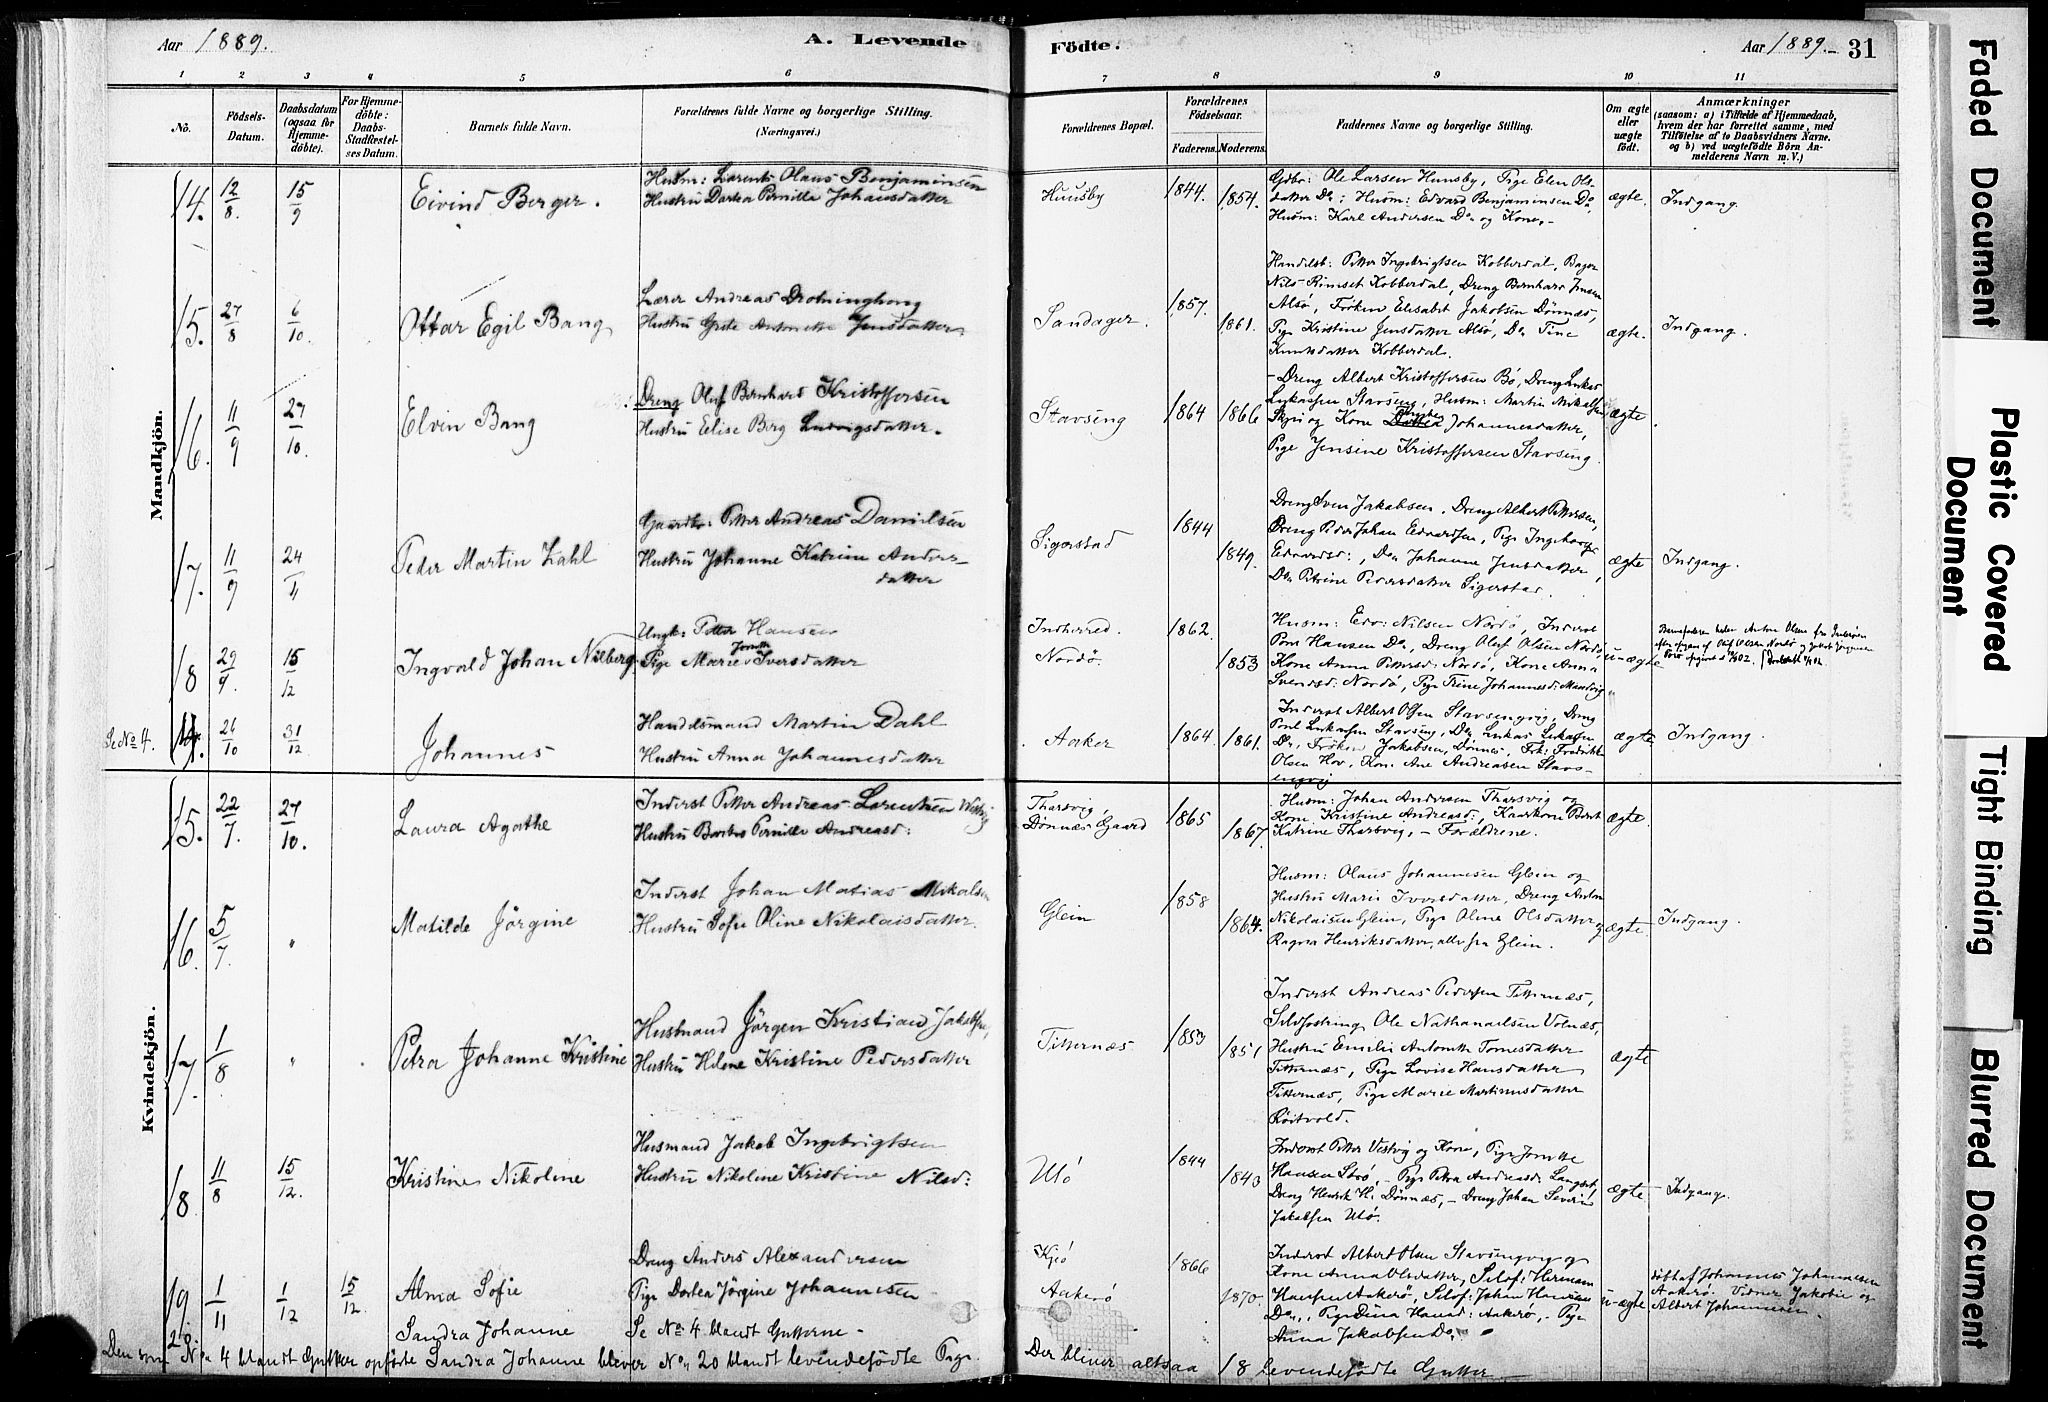 Aar 1889.
A. Levende
Födte.
Aar 1889. 31
1 2 3 4 5 6 7 8 9 10 11
No.
Födsels-
Datum.
Daabsdatum
(ogsaa for
Hjemme-
döbte).
For Hjemme-
döbte:
Daabs-
Stadfæstel-
ses Datum.
Barnets fulde Navn.
Forældrenes fulde Navne og borgerlige Stilling.
(Næringsvei.)
Forældrenes Bopæl.
Forældrenes
Födselsaar.
Faderens. Moderens.
Faddernes Navne og borgerlige Stilling.
Om ægte
eller
uægte
födt.
Anmærkninger
(saasom: a) i Tilfælde af Hjemmedaab,
hvem der har forrettet samme, med
Tilföielse af to Daabsvidners Navne,
og b) ved uægtefödte Börn An-
melderens Navn m. V.)
Mandkjön.
14. 12/8 15/9 Eivind Berger.
Husm: Lorents Olaus Benjaminsen
Hustru Dortea Pernille Johansdatter
Huusby 1844. 1854.
Gdbr: Ole Larsen Huusby, Pige Elen Ols-
datter Do; Husm: Edvard Benjaminsen Do,
Husm: Karl Andersen Do og Kone,-
ægte. Indgang.
15. 27/8 6/10 Ottar Egil Bang
Lærer Andreas Drotninghaug
Hustru Grete Antonette Jensdatter
Sandager. 1857. 1861.
Handelsb: Petter Ingebrigtsen Kobberdal, Bager
Nils Rimset Kobberdal, Dreng Bernhard Jensen
Alsø, Frøken Elisabet Jakobsen Dønnæs,
Pige Kristine Jensdatter Alsø, Do Tine
Knutsdatter Kobberdal.
ægte. Indgang.
16. 11/9 27/10 Elvin Bang
Dreng Oluf Bernhard Kristoffersen
Hustru Elise Berg Ludvigsdatter.
Stavseng 1864 1866
- Dreng Albert Kristoffersen Bø, Dreng Lukas
Lukassen Stavseng, Husm: Martin Mikalsen
Skjei og Kone Johannesdatter,
Pige Jensine Kristoffersen Stavseng.
ægte.
17. 11/9 24/11 Peder Martin Zahl
Gaardbr: Petter Andreas Danielsen
Hustru Johanne Katrine Anders-
datter
Sigerstad 1844 1849.
Dreng Sven Jakobsen, Dreng Albert Pettersen,
Dreng Peder Johan Edvardsen, Pige Ingeborg
Edvardsd:, Do Johanne Jensdatter,
Do Petrine Pedersdatter Sigerstad.
ægte Indgang.
18 29/9 15/12 Ingvald Johan Nilberg
Ungk: Petter Hansen
Pige Marie Jonette Iversdatter
Indherred.
Nordø. 1862. 1853
Husm: Edv: Nilsen Nordø, Inderst
Povl Hansen Do, Dreng Oluf Olsen Nordø,
Kone Anna Pettersd: Nordø, Kone Anna
Svendsd: Nordø, Pige Trine Johannesd: Mandvig
u-ægte
Se No 4. 14. 26/10 31/12 Johannes
Handelsmand Martin Dahl
Hustru Anna Johannesdatter
Aaker 1864. 1861.
Inderst Albert Olsen Stavsengvig, Dreng
Povl Lukassen Stavseng, Do Lukas Lukassen
Do, Frøken Jakobsen, Dønnes, Frk: Fredrikke
Olsen Hov, Kone Ane Andreasen Stavs-
engvig
ægte Indgang.
Kvindekjön.
15. 22/7. 27/10. Laura Agathe
Inderst Petter Andreas Lorentsen
Hustru Pernille Andreasd:
Tharsvig,
Dønnæs Gaard 1865 1867.
Husm: Johan Andersen Tharsvig og
Kone Kristine Andreasd:, Kaarkone Berit
Katrine Tharsvig, - Forældrene.
ægte.
16. 5/7. " Matilde Jörgine
Inderst Johan Matias Mikalsen
Hustru Sofie Oline Nikolaisdatter.
Glein 1858 1864.
Husm: Olaus Johannesen Glein og
Hustru Marie Iversdatter, Dreng Anton
Nikolaisen Glein, Pige Oline Olsdatter og
Ragna Henriksdatter, alle fra Glein.
ægte. Indgang.
17. 1/8 " Petra Johanne Kristine
Husmand Jörgen Kristian Jakobsen,
Hustru Helene Kristine Pedersdatter
Titternæs 1853 1851
Inderst Andreas Pedersen Titternæs,
Sildfostring Ole Nathanaelsen Volnæs,
Hustru Emilie Antonette Tomesdatter
Titternæs, Pige Lovise Hansdatter
Titternæs, Pige Marie Martinusdatter
Røitvold.
ægte
18 11/8 15/12. Kristine Nikoline
Husmand Jakob Ingebrigtsen
Hustru Nikoline Kristine Nilsd:
Utø 1844 1843
Inderst Petter Vestvig og Kone, Pige Jonette
Hansen Sørø, - Pige Petra Andreasd: Langset,
Dreng Henrik H. Dønnæs, - Dreng Johan Severin
Jakobsen Utø.
ægte Indgang.
19. 1/11 1/12 15/12. Alma Sofie
Dreng Anders Alexandersen
Pige Dortea Jörgine Johannesen
Kjeø
Aakerø 1866 1870.
Inderst Albert Olsen Stavsengvig og
Kone Anna Olsdatter, Selvf: Herman
Hansen Aakerø, Selvf: Johan Hansen
Do., Pige Dina Hansd: Aakerø, - Pige
Anna Jakobsen Do.
u-ægte
döbt af Johannes Johannesen
Aakerø. Vidner Jakobine og
Albert Johannesen
20. Sandra Johanne Se No 4 blandt Gutterne -
Den som No 4 blandt Gutter opførte Sandra Johanne bliver No. 20 blandt levendefødte Piger.
Der bliver altsaa 18 Levendefødte Gutter
Faded Document
Plastic Covered
Document
Tight Binding
Blurred Document